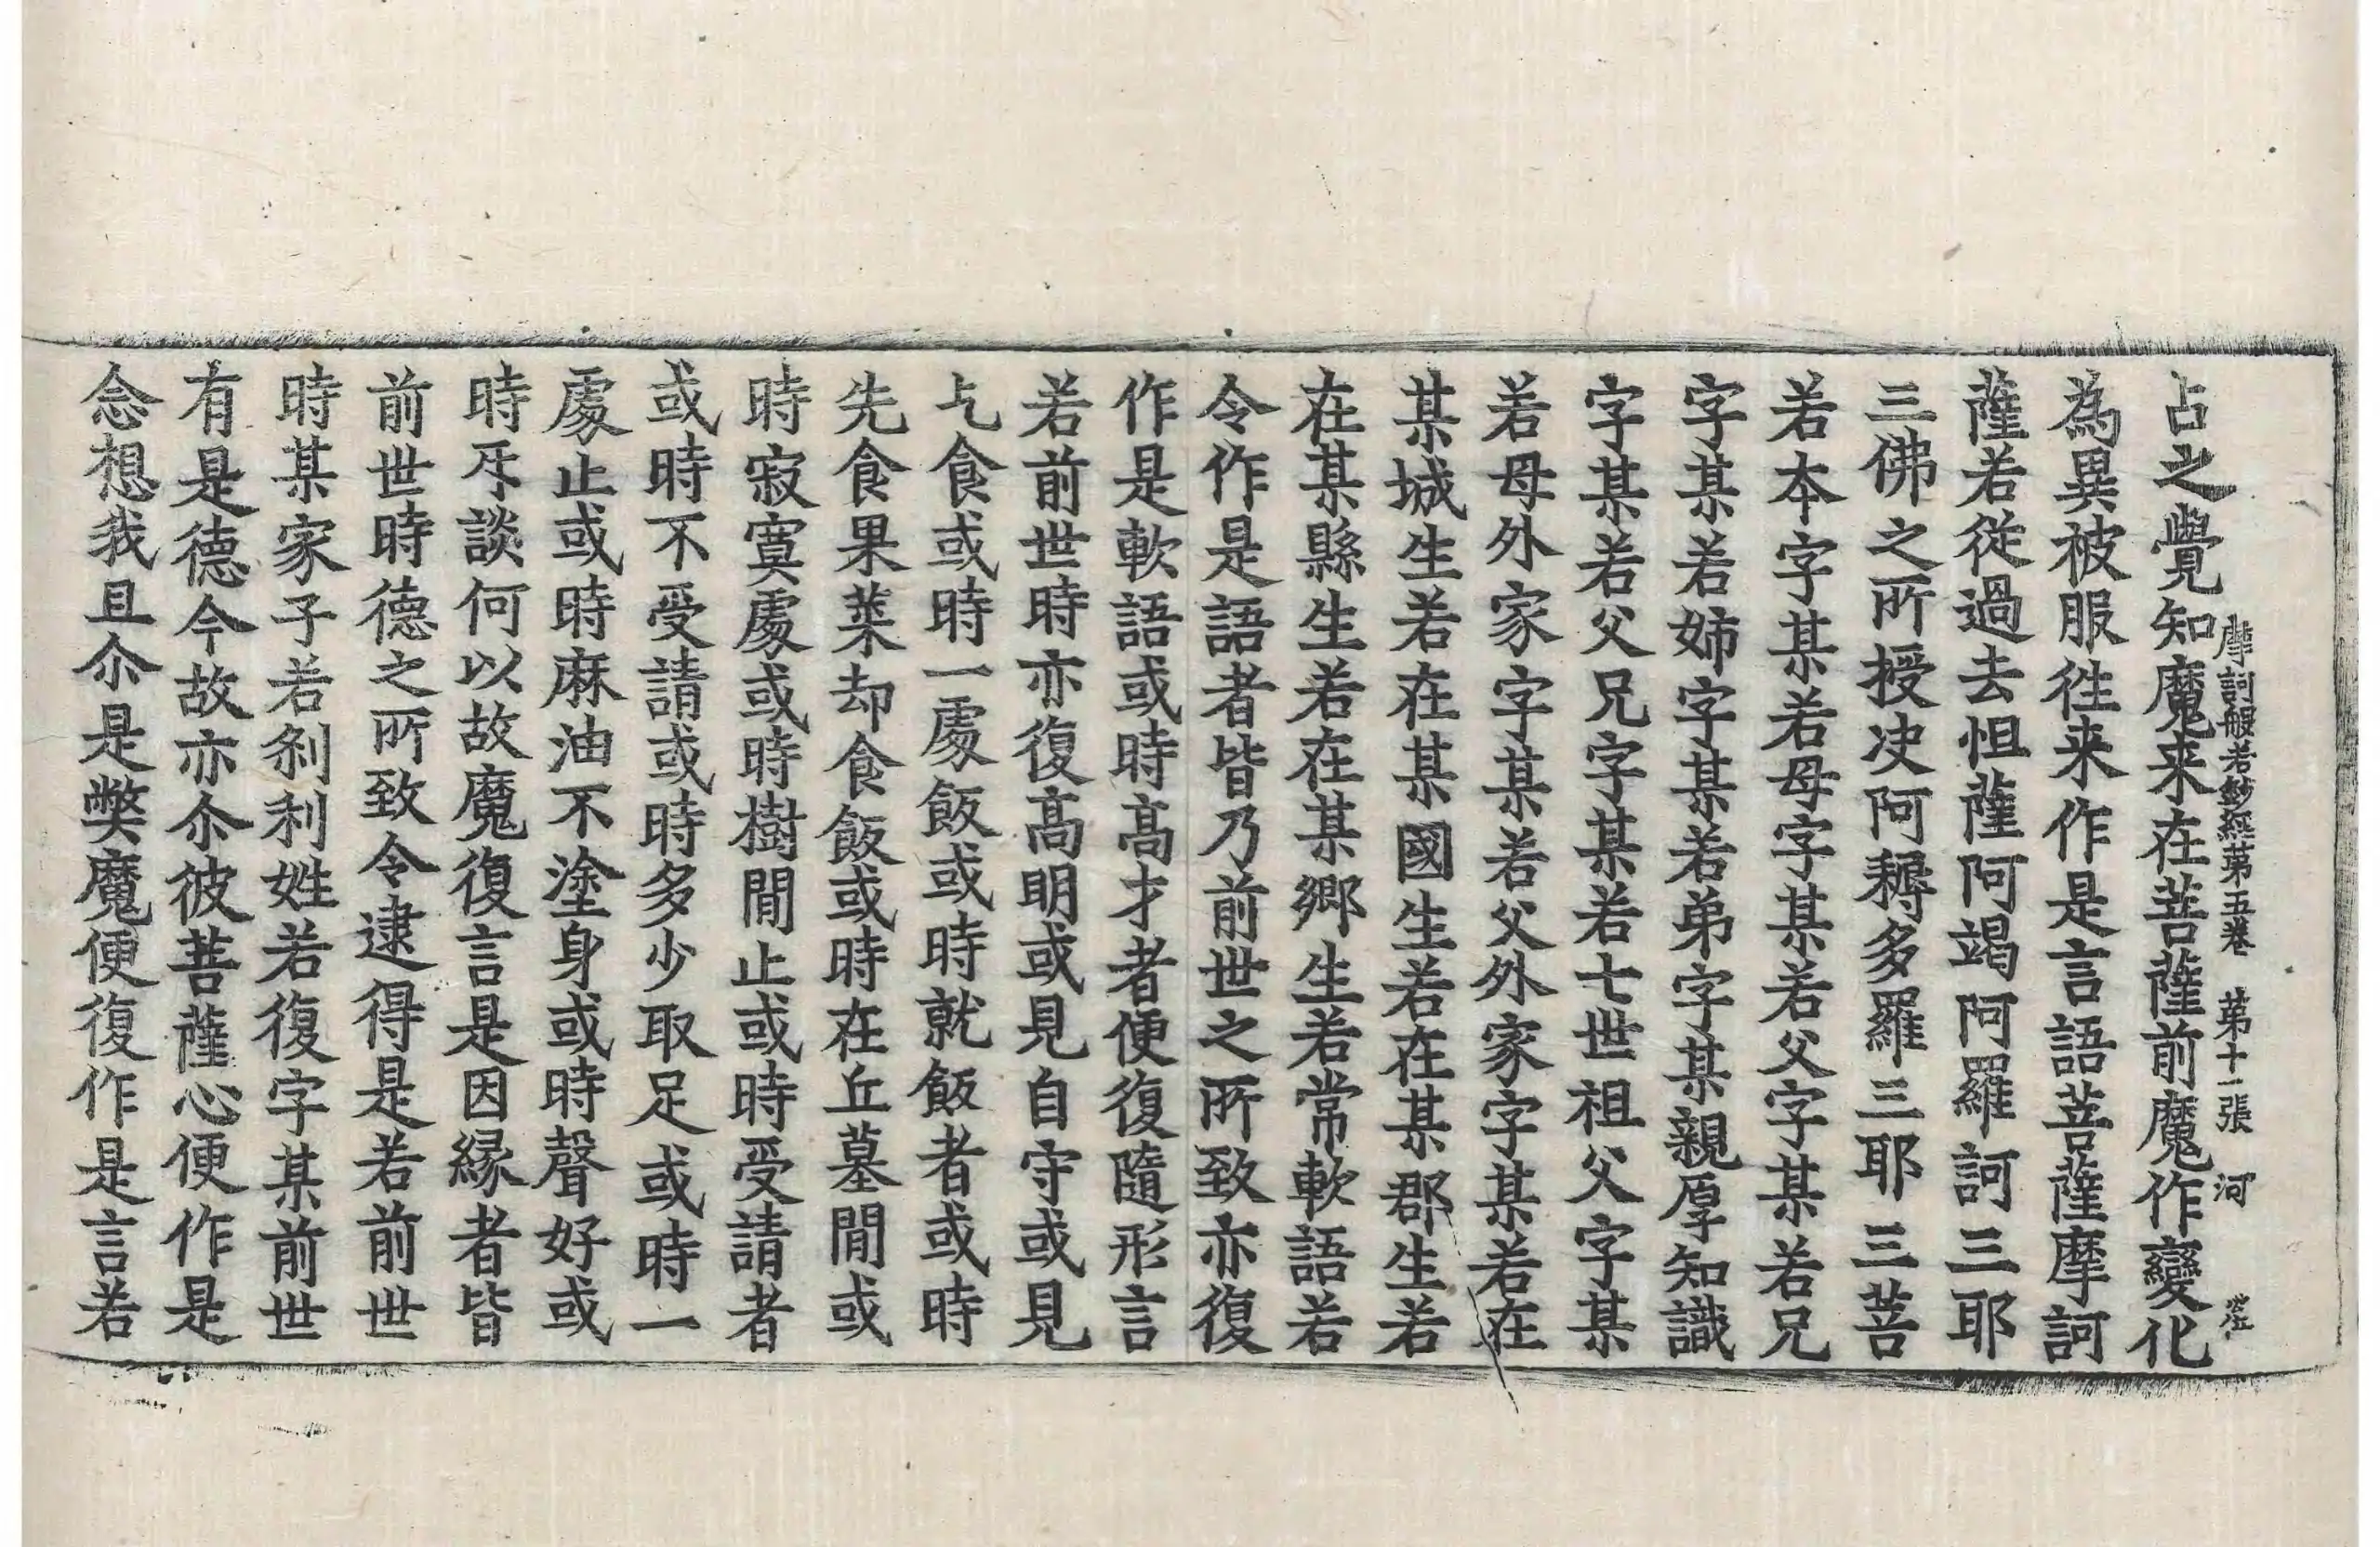 摩訶般若鈔經第五卷　第十一張　河
占之覺知魔来在菩薩前魔作變化
為異被服徃来作是言語菩薩摩訶
薩若從過去怛薩阿竭阿羅訶三耶
三佛之所授决阿耨多羅三耶三菩
若本字某若母字某若父字某若兄
字某若姉字某若弟字某親厚知識
字某若父兄字某若七世祖父字某
若母外家字某若父外家字某若在
某城生若在某國生若在某郡生若
在某縣生若在某鄉生若常軟語若
令作是語者皆乃前世之所致亦復
作是軟語或時高才者便復隨形言
若前世時亦復高明或見自守或見
乞食或時一處飯或時就飯者或時
先食果菜却食飯或時在丘墓間或
時寂寞處或時樹間止或時受請者
或時不受請或時多少取足或時一
處止或時麻油不塗身或時聲好或
時㸦談何以故魔復言是因緣者皆
前世時德之所致令逮得是若前世
時某家子若刹利姓若復字某前世
有是德今故亦尒彼菩薩心便作是
念想我且尒是弊魔便復作是言若